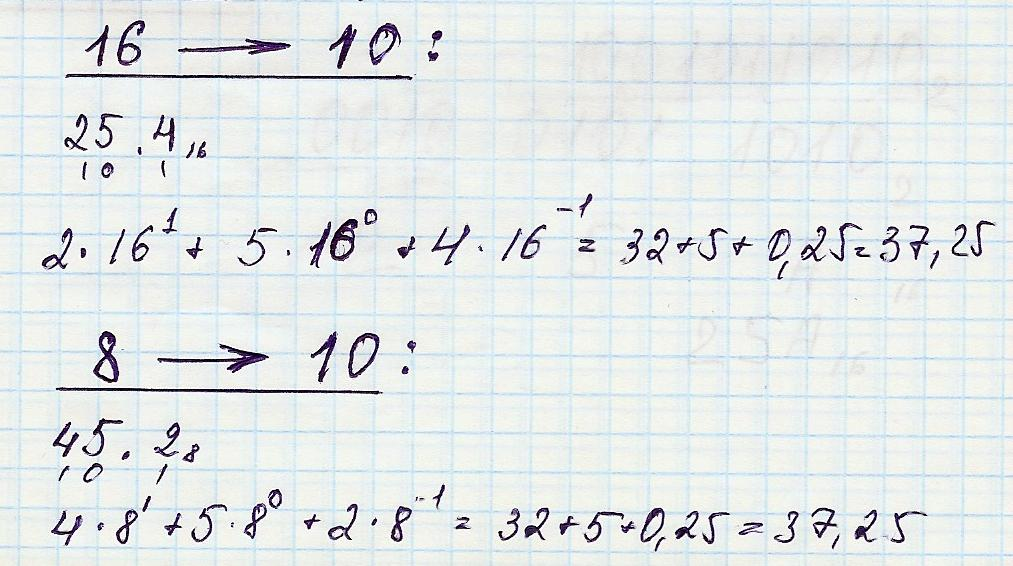 16 → 10 :
25 . 4₁₆
1 0 1
2 · 16¹ + 5 · 16⁰ + 4 · 16⁻¹ = 32 + 5 + 0,25 = 37,25
8 → 10 :
45 . 2₈
1 0 1
4 · 8¹ + 5 · 8⁰ + 2 · 8⁻¹ = 32 + 5 + 0,25 = 37,25